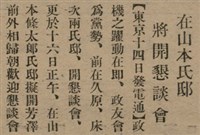 在山本氏邸
將開懇談會
【東京十四日發電通】政
機之躍動在即、政友會
為黨勢、前在久原、床
次兩氏邸、開懇談會、
更於十六日正午、在山
本條太郎氏邸擬開芳澤
前外相歸朝歡迎懇談會